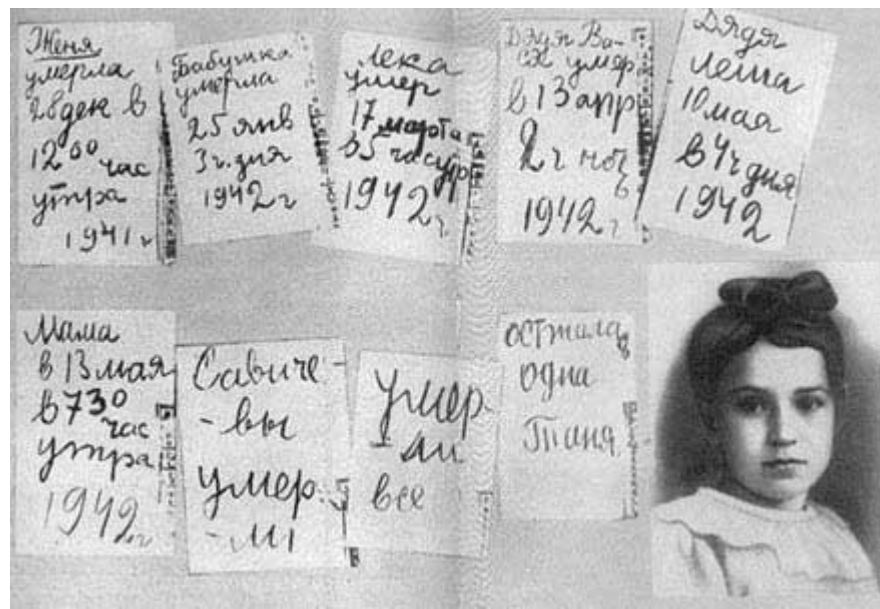 Женя
умерла
28 дек в
12 00 час
утра
1941 г
Бабушка
умерла
25 янв
3 ч. дня
1942 г
Лека
умер
17 марта
в 5 час утр
1942 г
Дядя Ва-
ся умер
в 13 апр
2 ч ноч
ь
1942 г
Дядя
Леша
10 мая
в 4 ч дня
1942
Мама
в 13 мая
в 7 30
час
утра
1942 г
Савиче-
-вы
умер-
-ли
умер-
-ли
все
Осталас
одна
Таня